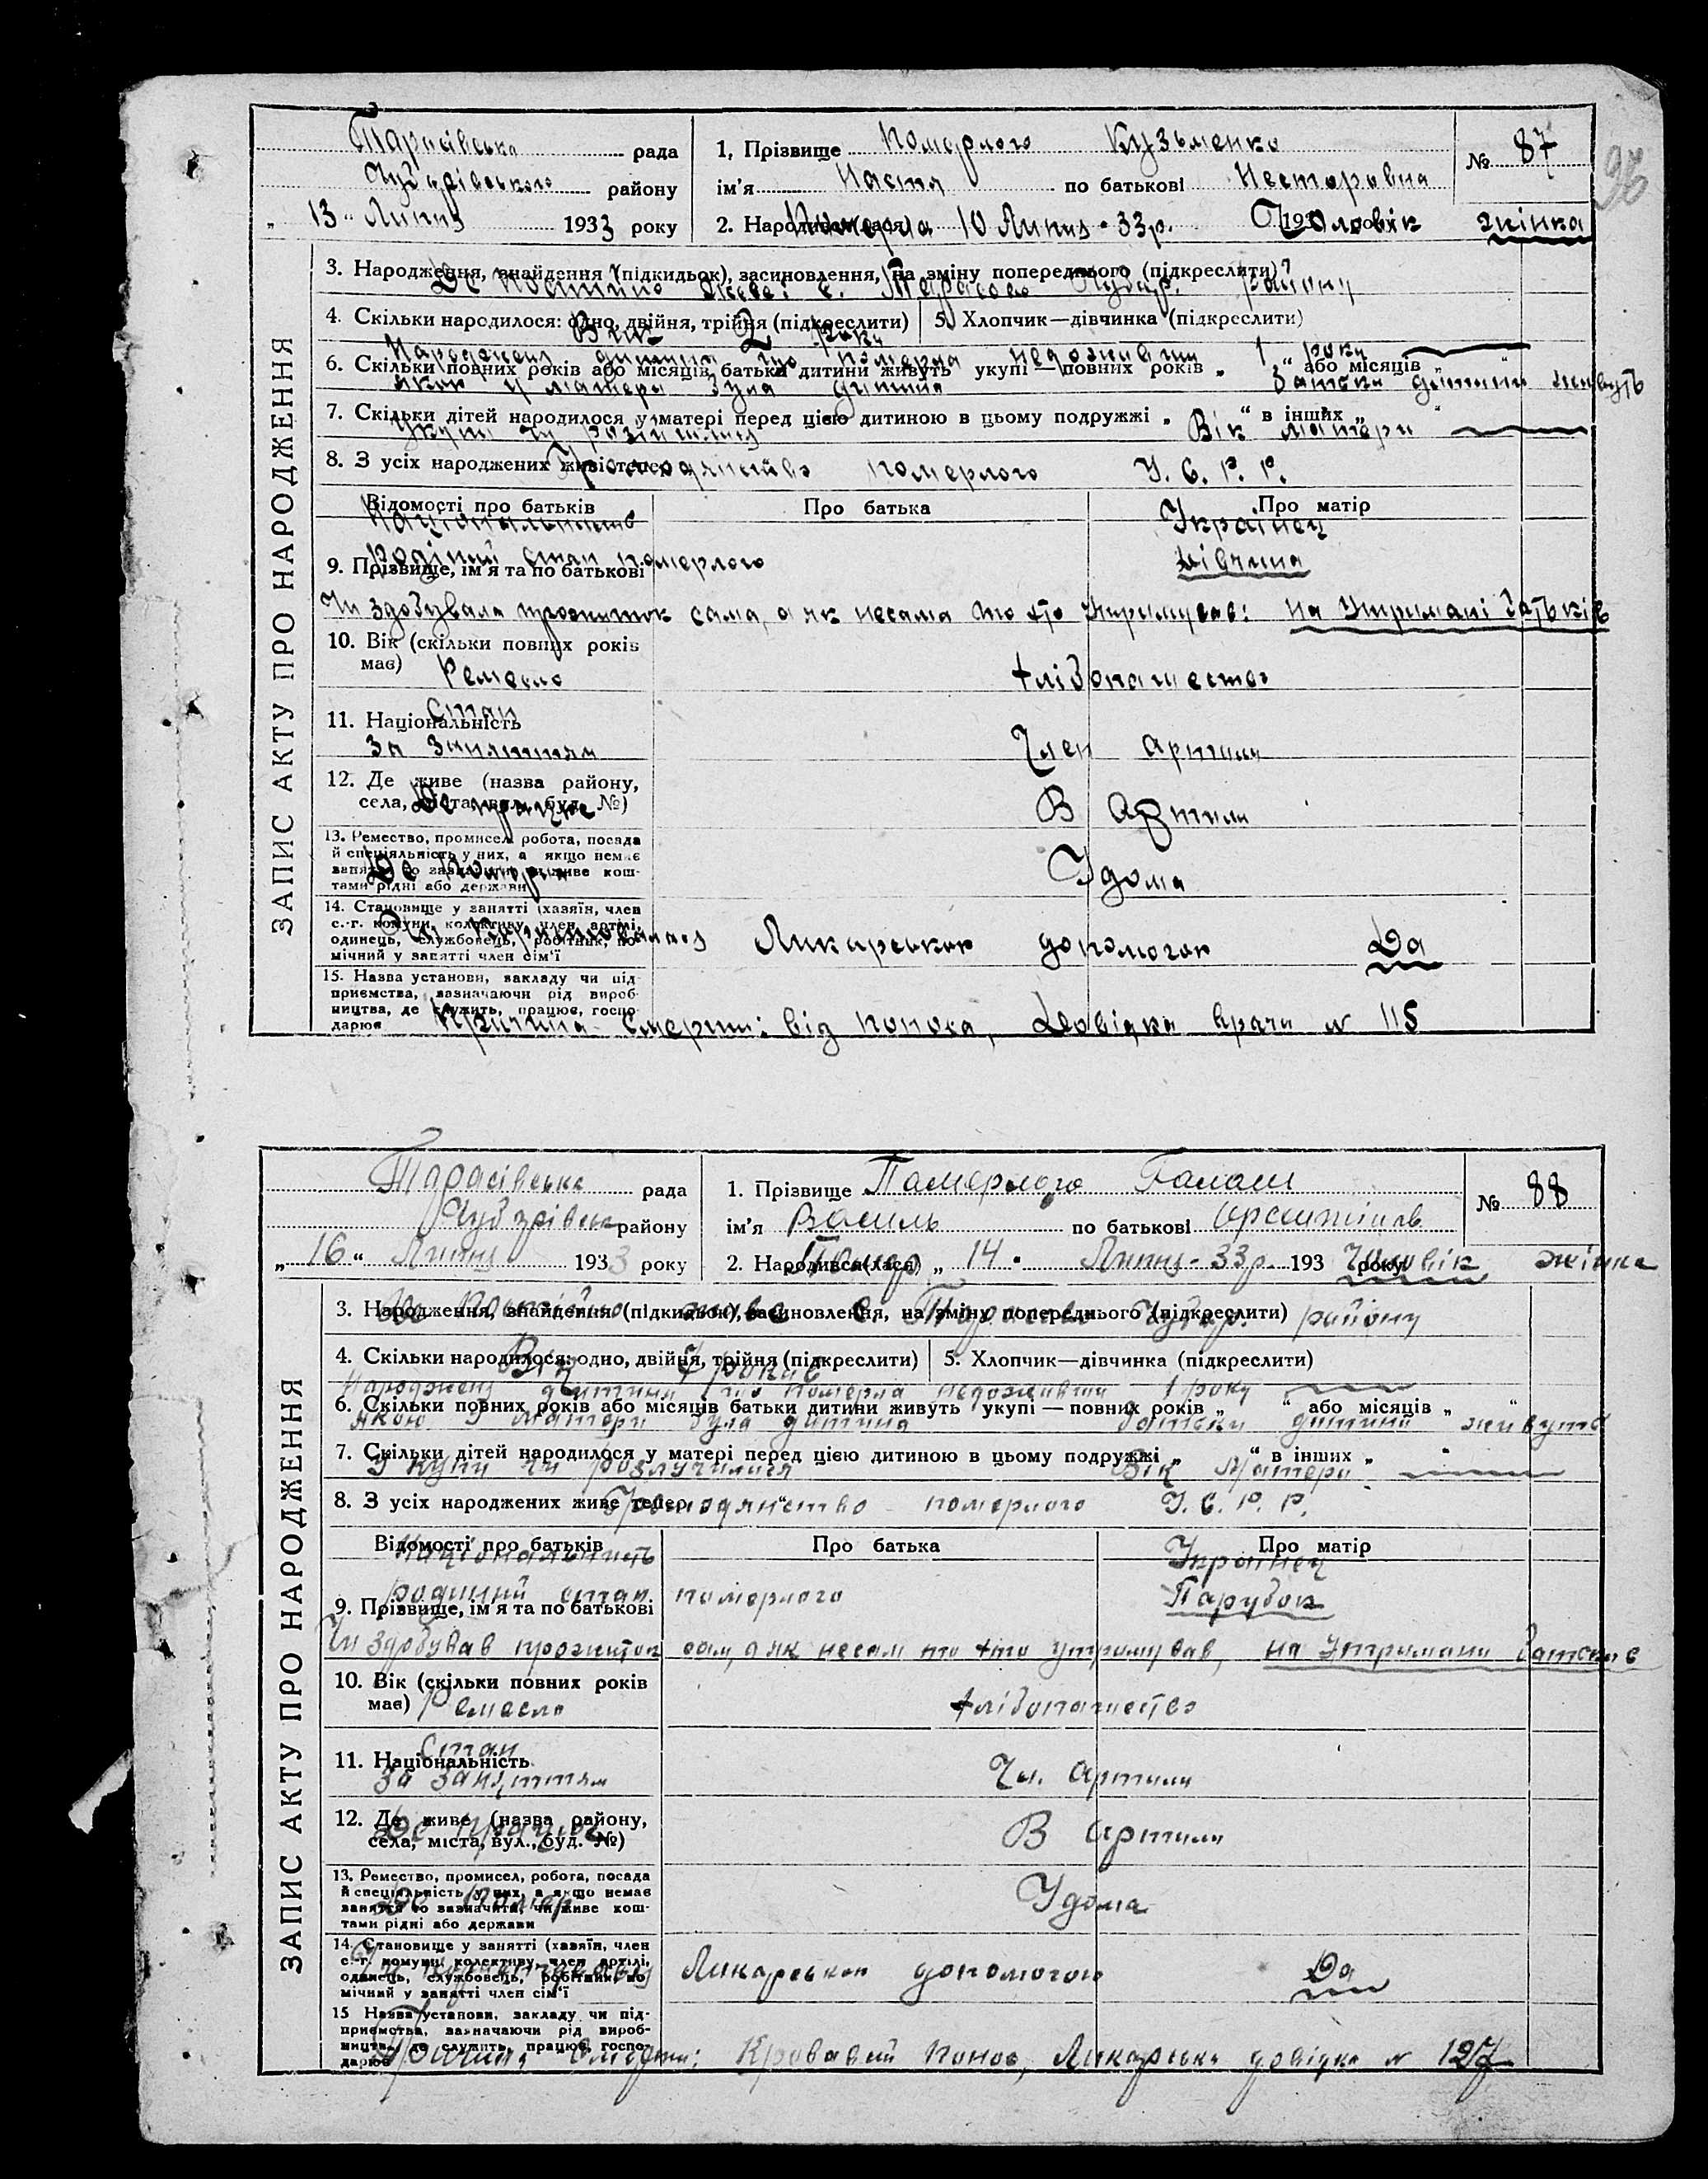 96
Тарасівська рада
Чубарівського району
„ 13 “ Липня 1933 року
1, Прізвище Померлого Кузьменко
ім'я Настя по батькові Несторовна
№ 87
2. Народився(лася) Померла 10 Липня - 33р. 193 року Чоловік жінка
ЗАПИС АКТУ ПРО НАРОДЖЕННЯ
3. Народження, знайдення (підкидьок), засиновлення, на зміну попереднього (підкреслити)
Де постійно живе: с. Тарасовка Чубар. району
4. Скільки народилося: одно, двійня, трійня (підкреслити) 5. Хлопчик—дівчинка (підкреслити)
Вик 2 роки
Народженя дитини що померла недоживши 1 року
6. Скільки повних років або місяців батьки дитини живуть укупі — повних років „ “ або місяців „ “
якою у матери була дитина батьки дитини живуть
7. Скільки дітей народилося у матері перед цією дитиною в цьому подружжі „ “ в інших „ “
укупи чи розійшлися Вік матери
8. З усіх народжених живі тепер
Громодянство померлого У. С. Р. Р.
Відомості про батьків Про батька Про матір
Національність Українец
Родіний стан померлого дівчина
9. Прізвище, ім'я та по батькові
Чи здобувала прожиток сама, а як несама то хто утримував: на утримані батьків
10. Вік (скільки повних років має)
Ремесло хлібопашество
Стан
11. Національність
за заняттям Член артили
12. Де живе (назва району, села, міста, вул., буд. №)
Де працює В артили
13. Ремество, промисел, робота, посада й спеціяльність у них, а якщо немає заняття то зазначити, чи живе коштами рідні або держави
Де померла Удома
14. Становище у занятті (хазяїн, член с.-г. комуни, колективу, член артілі, одинець, службовець, робітник, помічний у занятті член сім'ї
Ликарською допомогою Да
15. Назва установи, закладу чи підприємства, зазначаючи рід виробництва, де служить, працює, господарює
Причина смерти: від поноса, Довідка врача № 115
Тарасівська рада
району
„ 16 “ Липня 1933 року
1. Прізвище Памерлого Галаш
ім'я Василь по батькові
№ 88
2. Народився(лася) „ 14 “ Липня - 33р. 193 року Чоловік жінка
ЗАПИС АКТУ ПРО НАРОДЖЕННЯ
3. Народження, знайдення (підкидьок), засиновлення, на зміну попереднього (підкреслити)
Де постійно живе с. Тарасовка Чубар. району
4. Скільки народилося: одно, двійня, трійня (підкреслити) 5. Хлопчик—дівчинка (підкреслити)
Вік 7 років
Народженя дитини що померла недоживши 1 року
6. Скільки повних років або місяців батьки дитини живуть укупі — повних років „ “ або місяців „ “
якою у матери була дитина батьки дитини живуть
7. Скільки дітей народилося у матері перед цією дитиною в цьому подружжі „ “ в інших „ “
укупи чи розлучилися Вік матери
8. З усіх народжених живе тепер
Громодянство померлого У. С. Р. Р.
Відомості про батьків Про батька Про матір
Національність Українец
Родиний стан померлого Парубок
9. Прізвище, ім'я та по батькові
Чи здобував прожиток сам, а як несам то хто утримував, на утримани батьків
10. Вік (скільки повних років має)
Ремесло хлібопашество
Стан
11. Національність
За заняттям Чл. артили
12. Де живе (назва району, села, міста, вул., буд. №)
Де працює В артили
13. Ремество, промисел, робота, посада й спеціяльність у них, а якщо немає заняття то зазначити, чи живе коштами рідні або держави
Де помер Удома
14. Становище у занятті (хазяїн, член с.-г. комуни, колективу, член артілі, одинець, службовець, робітник, помічний у занятті член сім'ї
Ликарською допомогою Да
15 Назва установи, закладу чи підприємства, зазначаючи рід виробництва, де служить, працює, господарює
Причина смерти: Кровавий понос, Ликарська довідка № 127